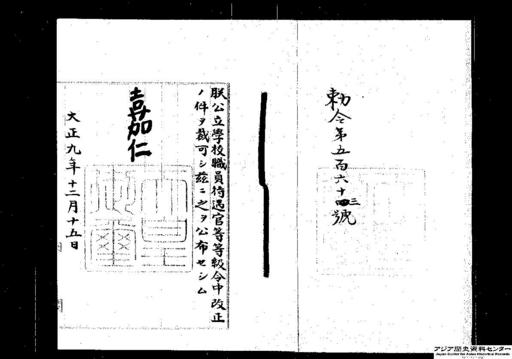 勅令第五百六十三號
朕公立學校職員待遇官等等級令中改正
ノ件ヲ裁可シ茲ニ之ヲ公布セシム
嘉仁
大正九年十二月十五日
アジア歴史資料センター
Japan Center for Asian Historical Records